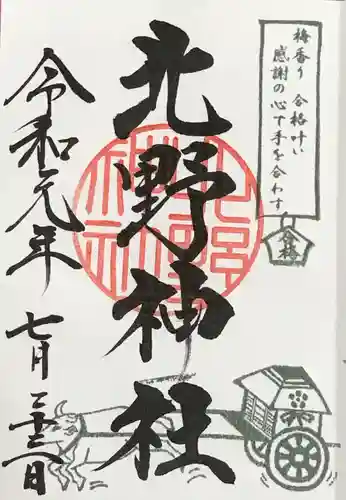 梅香り 合格叶い
感謝の心で手を合わす
合格
北野神社
北野神社
令和元年
七月二十三日